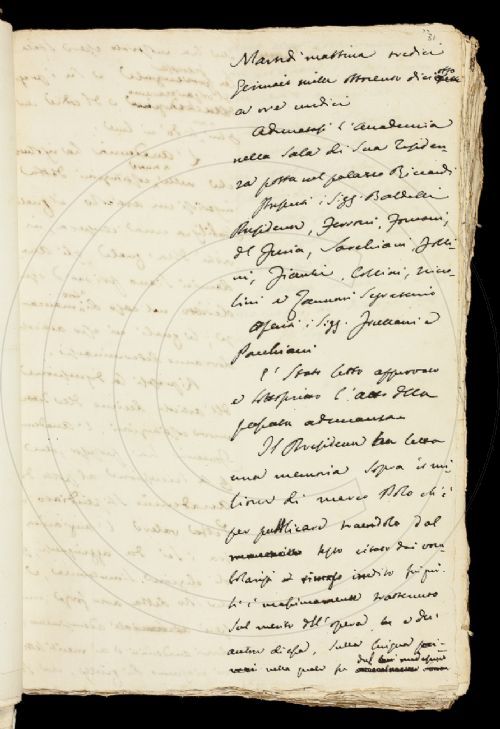 31
Martedì mattina tredici
Gennaio mille ottocento dieciotto
a ore undici
Adunatasi l'Accademia
nella Sala di Sua residen
za posta nel palazzo Riccardi
Presenti i Sigg. Baldelli
Presidente, Ferroni, Fontani,
del Furia, Sarchiani,
ni, Collini, Nico
lini e Zannoni Segretario
Assenti i Sigg. e
Pacchiani
È stato letto approvato
e sottoscritto l'atto della
passata adunanza
Il Presidente ha letto
una memoria sopra il mi
lione di Marco Polo ch'è
per pubblicare traendolo dal
testo citato dai voca
bolaristi e inedito fin qui.
Si è massimamente trattenuto
sul merito dell'opera e del
autore di essa, sulla lingua
nella quale fu dal